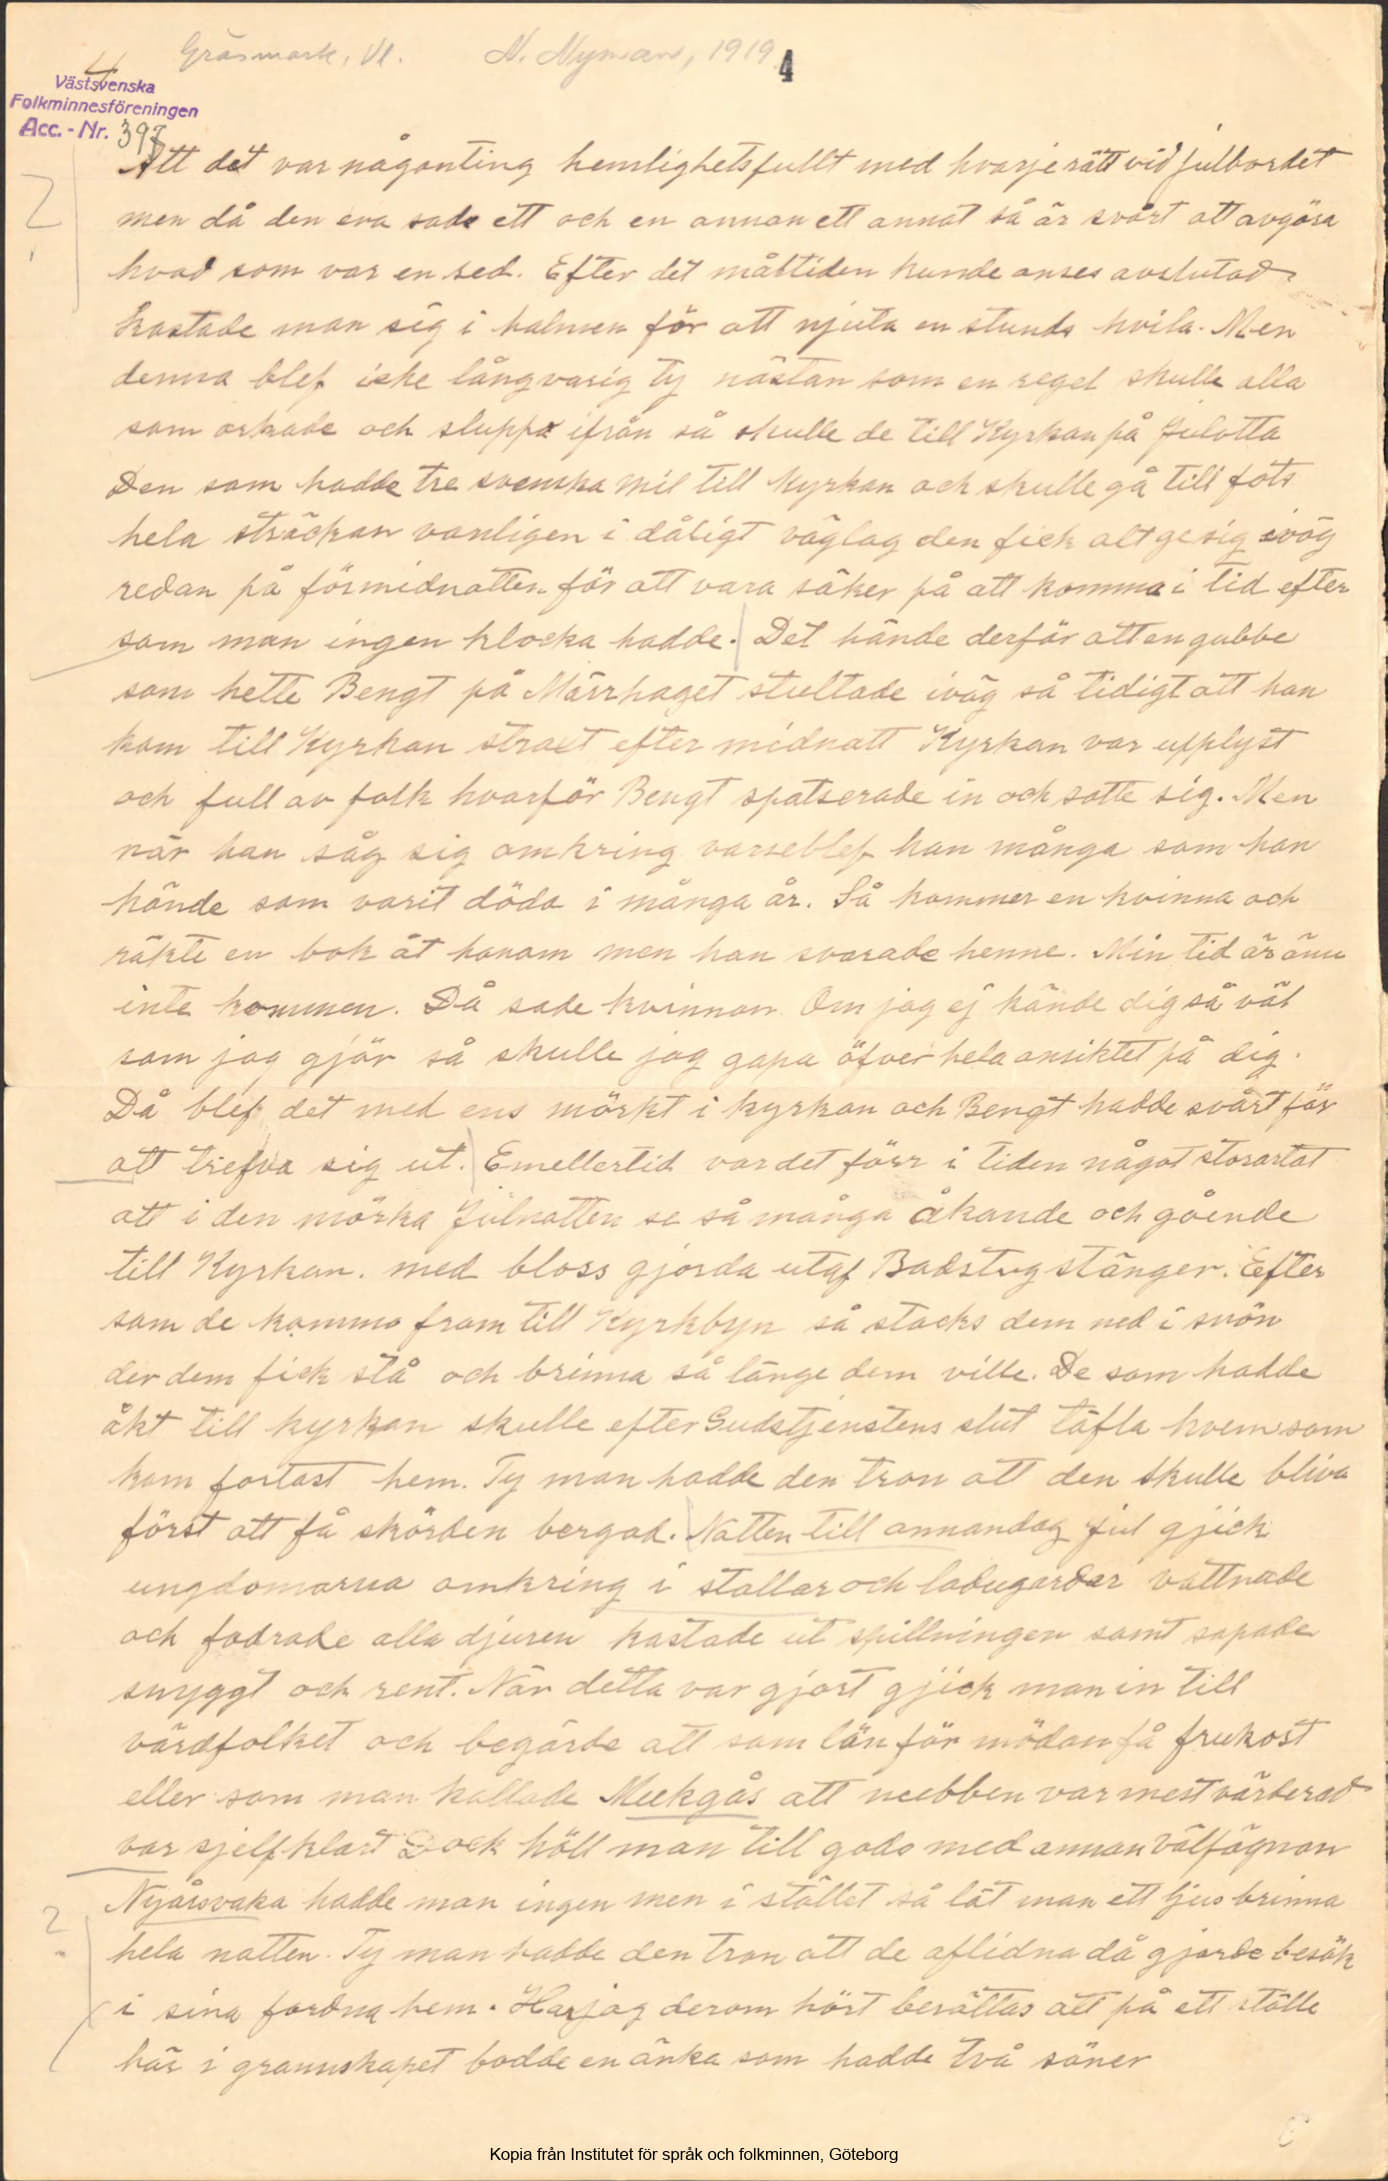 Gräsmark, Vl. N. Nyman, 1919. 4
4
Västsvenska
Folkminnesföreningen
Acc.-Nr. 397
Att det var någonting hemlighetsfullt med hvarje rätt vid julbordet
men då den ena sade ett och en annan ett annat så är svårt att avgöra
hvad som var en sed. Efter det måltiden kunde anses avslutad
kastade man sig i halmen för att njuta en stunds hvila. Men
denna blef icke långvarig ty nästan som en regel skulle alla
som orkade och sluppo ifrån så skulle de till Kyrkan på Julotta
Den som hadde tre svenska mil till kyrkan och skulle gå till fots
hela sträckan vanligen i dåligt väglag den fick alt ge sig iväg
redan på förmidnatten för att vara säker på att komma i tid efter
som man ingen klocka hadde. Det hände derför att en gubbe
som hette Bengt på Märrhaget stultade iväg så tidigt att han
kom till Kyrkan straxt efter midnatt Kyrkan var upplyst
och full av folk hvarför Bengt spatserade in och satte sig. Men
när han såg sig omkring varseblef han många som han
kände som varit döda i många år. Så kommer en kvinna och
räkte en bok åt honom men han svarade henne. Min tid är änu
inte kommen. Då sade kvinnan Om jag ej kände dig så väl
som jag gjör så skulle jag gapa öfver hela ansiktet på dig.
Då blef det med ens mörkt i kyrkan och Bengt hadde svårt för
att trefva sig ut. Emellertid var det förr i tiden något storartat
att i den mörka Julnatten se så många åkande och gående
till Kyrkan. med bloss gjorda utaf Badstugstänger. Efter
som de kommo fram till Kyrkbyn så stacks dem ned i snön
der dem fick stå och brinna så länge dem ville. De som hadde
åkt till kyrkan skulle efter Gudstjenstens slut täfla hvem som
kom fortast hem. Ty man hadde den tron att den skulle bliva
först att få skörden bergad. Natten till annandag jul gjick
ungdomarna omkring i stallar och ladugårdar vattnade
och fodrade alla djuren kastade ut spillningen samt sopade
snyggt och rent. När detta var gjort gjick man in till
värdfolket och begärde att som lön för mödan få frukost
eller som man kallade Meekgås att neebben var mest värderad
var sjelfklart Dock höll man till godo med annan Välfägnan
Nyårsvaka hadde man ingen men i stället så lät man ett ljus brinna
hela natten. Ty man hadde den tron att de aflidna då gjorde besök
i sina fordna hem. Har jag derom hört berättas att på ett ställe
här i grannskapet bodde en änka som hadde två söner
Kopia från Institutet för språk och folkminnen, Göteborg